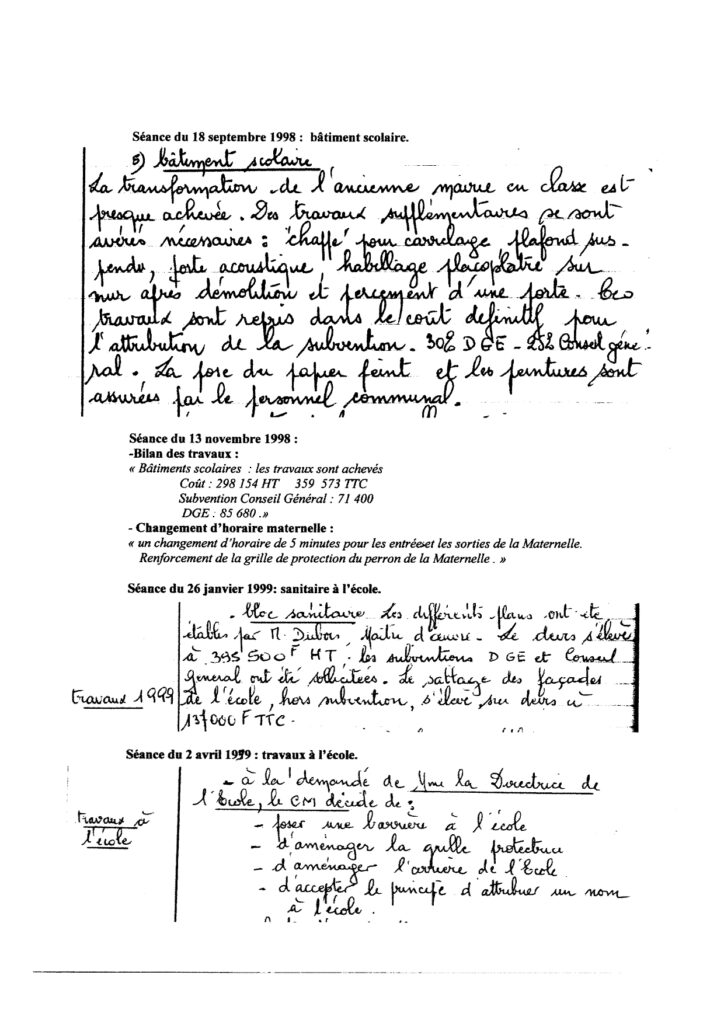 Séance du 18 septembre 1998 : bâtiment scolaire.
5) bâtiment scolaire
La transformation de l'ancienne mairie en classe est
presque achevée. Des travaux supplémentaires se sont
avérés nécessaires : "chappe" pour carrelage, plafond sus-
pendu, porte acoustique, habillage placoplatre sur
mur après démolition et percement d'une porte. Ces
travaux sont repris dans le coût définitif pour
l'attribution de la subvention. 30% DGE - 25% Conseil géné-
ral. La pose du papier peint et les peintures sont
assurées par le personnel communal.
Séance du 13 novembre 1998 :
-Bilan des travaux :
« Bâtiments scolaires : les travaux sont achevés
Coût : 298 154 HT 359 573 TTC
Subvention Conseil Général : 71 400
DGE : 85 680 .»
- Changement d'horaire maternelle :
« un changement d'horaire de 5 minutes pour les entrées et les sorties de la Maternelle.
Renforcement de la grille de protection du perron de la Maternelle . »
Séance du 26 janvier 1999: sanitaire à l'école.
- bloc sanitaire Les différents plans ont été
établis par M. Dubois, Maître d'œuvre. Le devis s'élève
à 395 500 F HT. les subventions DGE et Conseil
General ont été sollicitées. Le sattage des façades
travaux 1999 de l'école, hors subvention, s'élève sur devis à
137000 F TTC.
Séance du 2 avril 1999 : travaux à l'école.
- à la demande de Mme la Directrice de
l'Ecole, le CM décide de :
travaux à
l'école
- poser une barrière à l'école
- d'aménager la grille protectrice
- d'aménager l'arrière de l'Ecole
- d'accepter le principe d'attribuer un nom
à l'école.